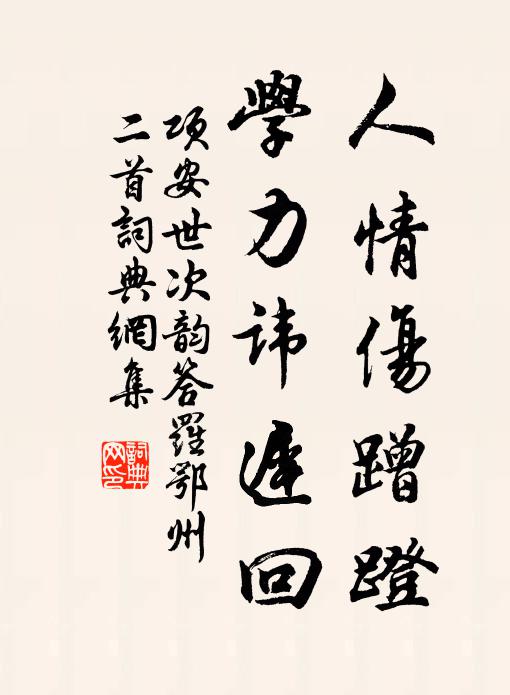 人情傷蹭蹬
學力諱遲回
項安世次韵答羅鄂州
二首詞典網集
詞典網印